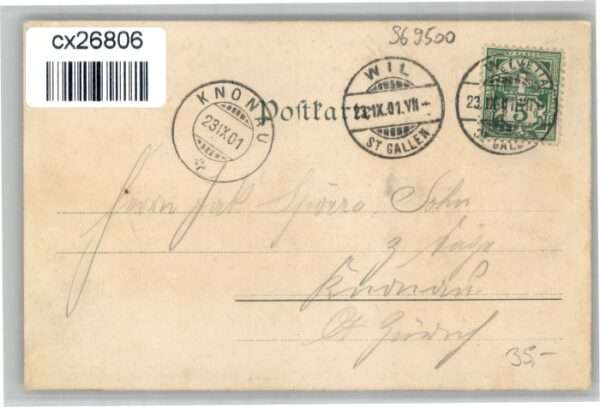 cx26806
SG 9500
HELVETIA
WIL
23.IX.01.VII
ST GALLEN
23.IX.01.VII
ST GALLEN
5
KNONAU
23 IX 01
Postkarte
Herrn Jak Sohn
z
Knonau
Ct Zürich
35.-